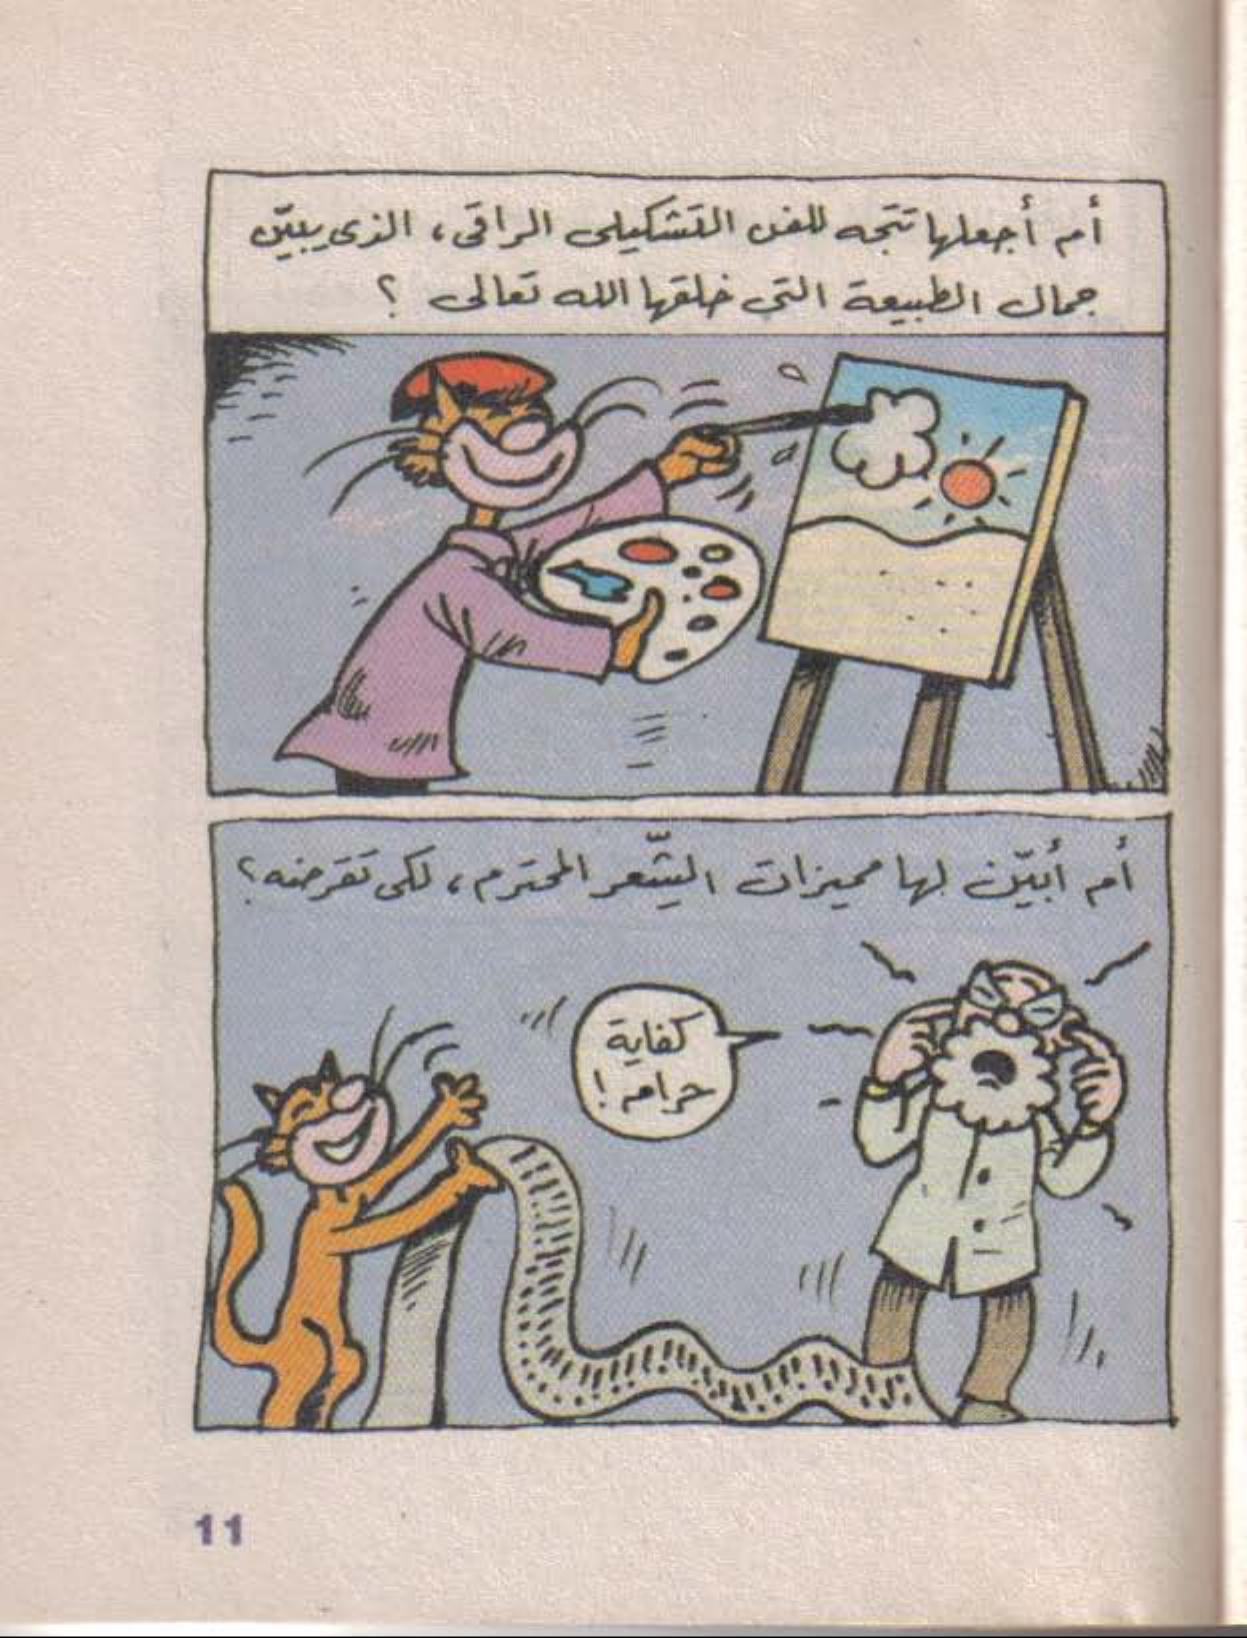 أم أجعلها تتجه للفن التشكيلى الراقى، الذى يبيّن
جمال الطبيعة التى خلقها الله تعالى ؟
أم أبيّن لها مميزات الشّعر المحترم، لكى تقرضه؟
كفاية
حرام!
11